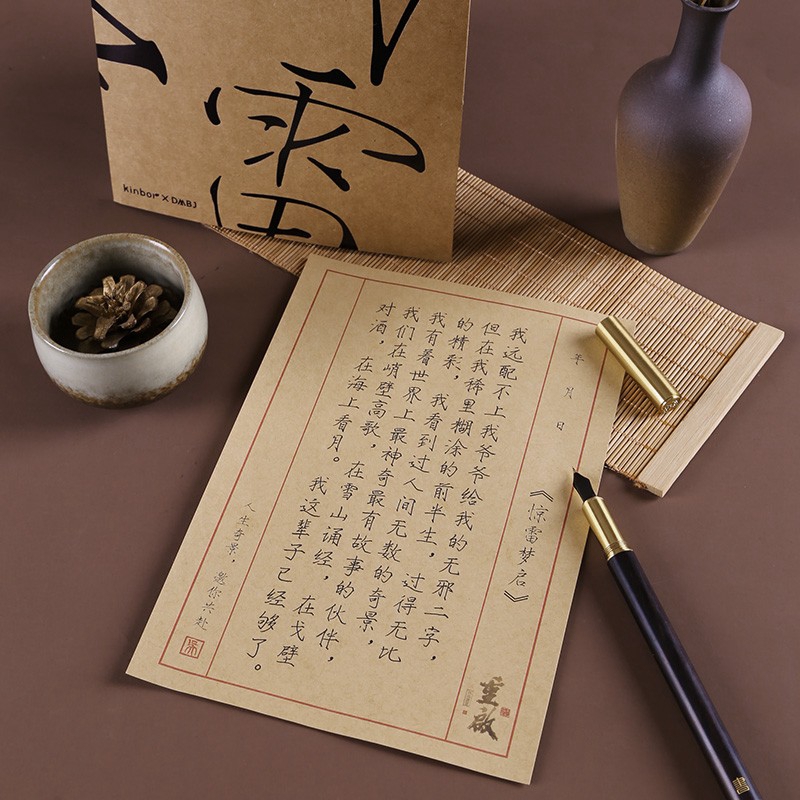 雷
kinbor × DMBJ
年 月 日
《惊雷梦启》
我远配不上我爷爷给我的无邪二字，
但在我稀里糊涂的前半生，过得无比
的精彩，我看到过人间无数的奇景，
我有着世界上最神奇最有故事的伙伴，
我们在峭壁高歌，在雪山诵经，在戈壁
对酒，在海上看月。我这辈子已经够了。
人生奇景，邀你共赴
重啟
書